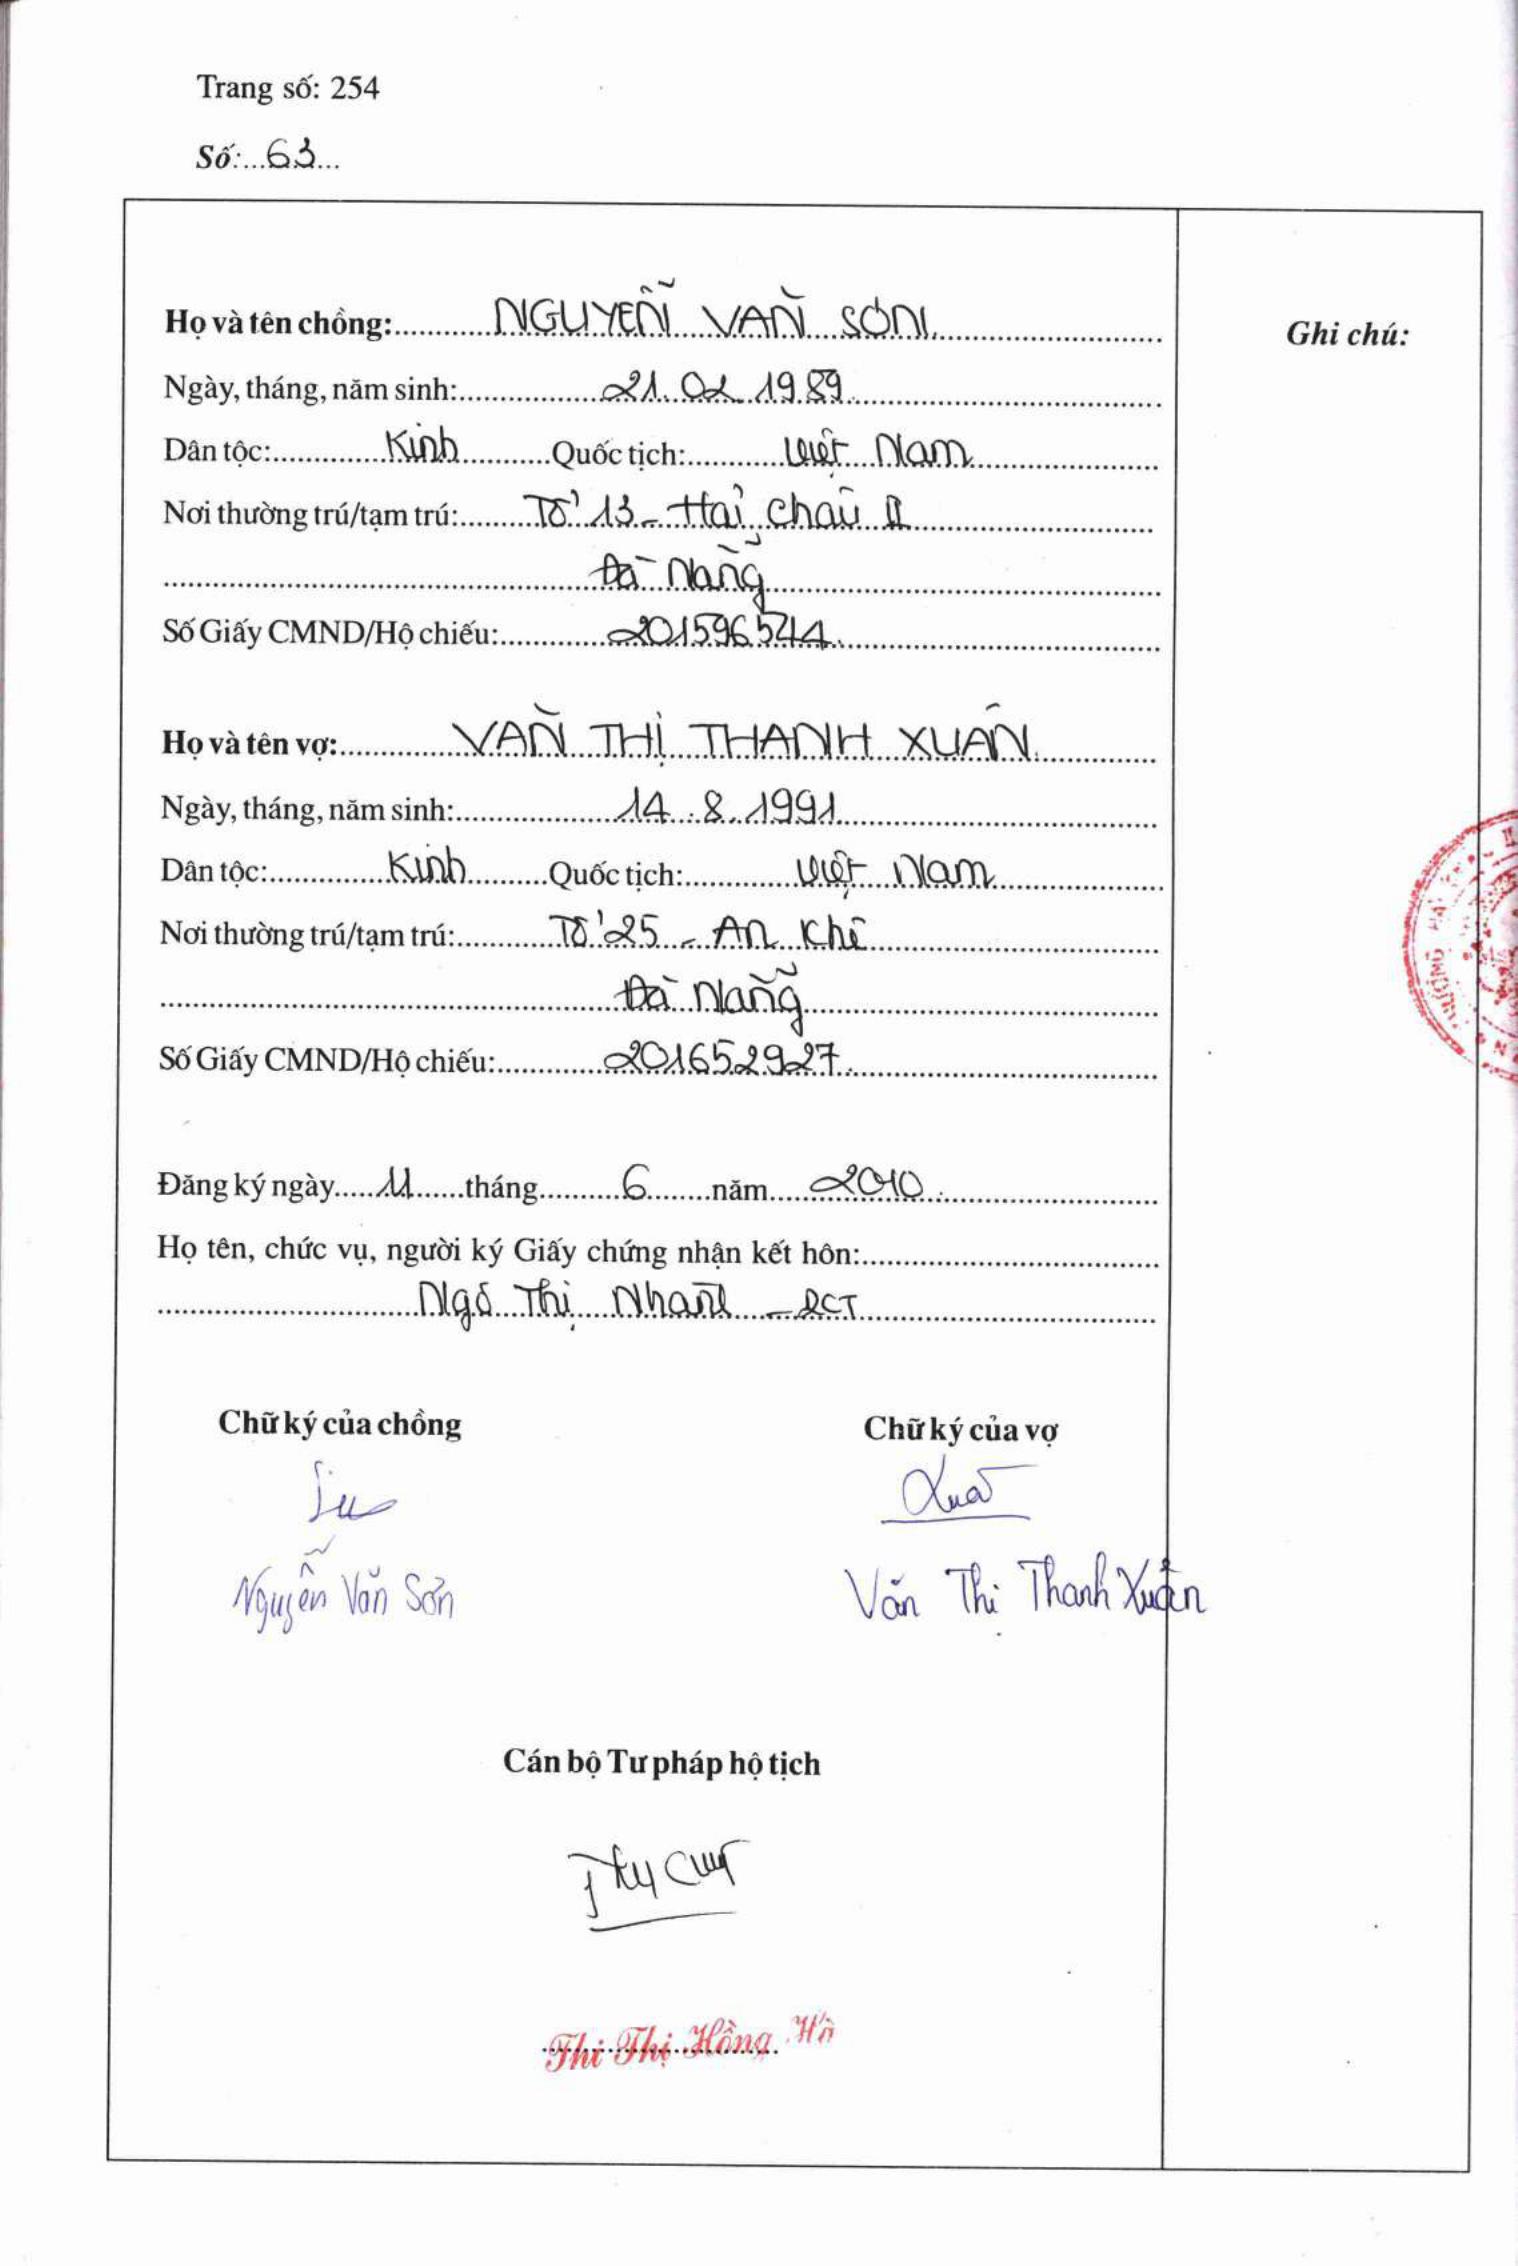 Trang số: 254
Số: 63
Họ và tên chồng: NGUYỄN VĂN SƠN
Ghi chú:
Ngày, tháng, năm sinh: 21.02.1989
Dân tộc: Kinh Quốc tịch: Việt Nam
Nơi thường trú/tạm trú: Tổ 13 - Hải Châu II
Đà Nẵng
Số Giấy CMND/Hộ chiếu: 201596544
Họ và tên vợ: VĂN THỊ THANH XUÂN
Ngày, tháng, năm sinh: 14.8.1991
Dân tộc: Kinh Quốc tịch: Việt Nam
Nơi thường trú/tạm trú: Tổ 25 - An Khê
Đà Nẵng
Số Giấy CMND/Hộ chiếu: 201652927
Đăng ký ngày 11 tháng 6 năm 2010
Họ tên, chức vụ, người ký Giấy chứng nhận kết hôn:
Ngô Thị Nhanh - PCT
Chữ ký của chồng Chữ ký của vợ
Nguyễn Văn Sơn Văn Thị Thanh Xuân
Cán bộ Tư pháp hộ tịch
Thi Thị Hồng Hà